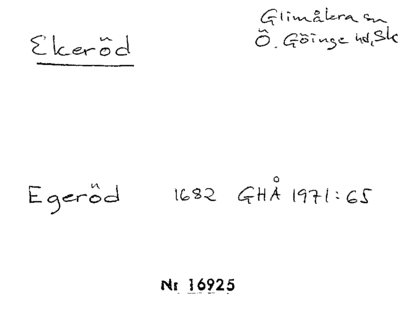 Ekeröd
Glimåkra sn
Ö. Göinge hd, Sk
Egeröd 1682 GHÅ 1971:65
Nr 16925